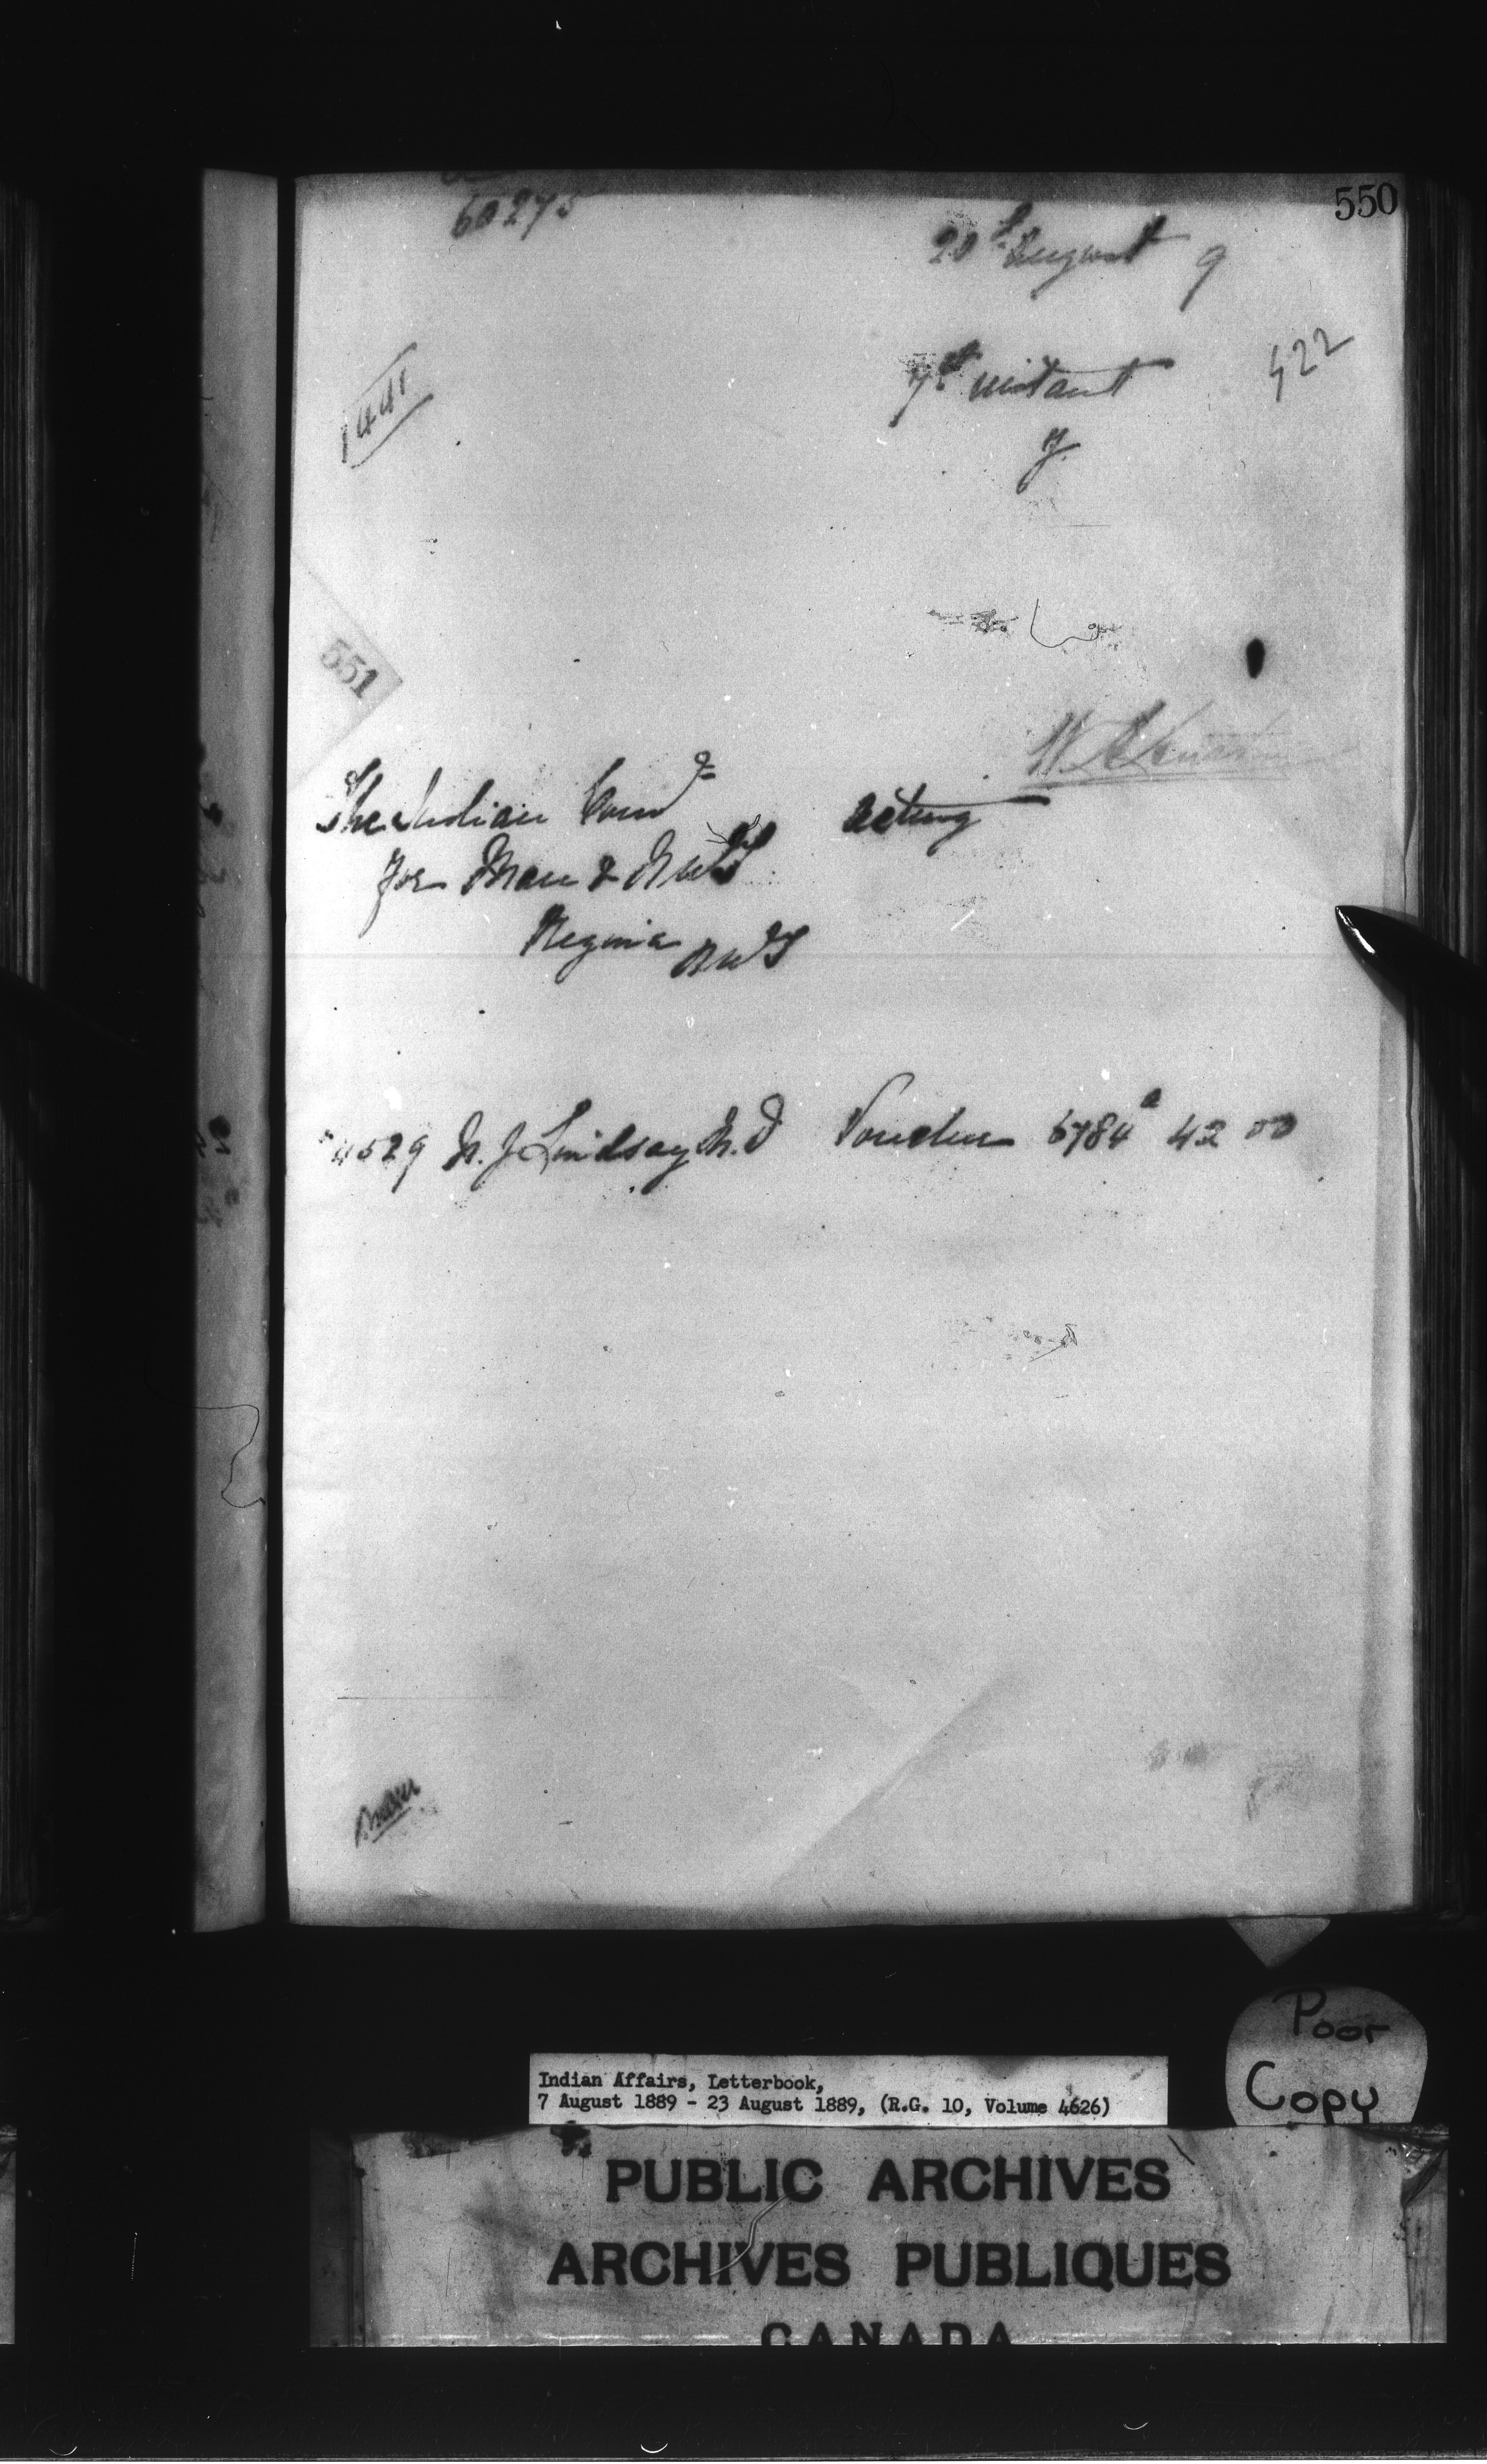 550
60275
20th August 9
7th instant
422
7.
1441
551
The Indian Comr
acting
for Man & NWT
Regina NWT
4529 N. J. Lindsay M.D Voucher 6784a 42 00
Poor
Copy
Indian Affairs, Letterbook,
7 August 1889 - 23 August 1889, (R.G. 10, Volume 4626)
PUBLIC ARCHIVES
ARCHIVES PUBLIQUES
CANADA